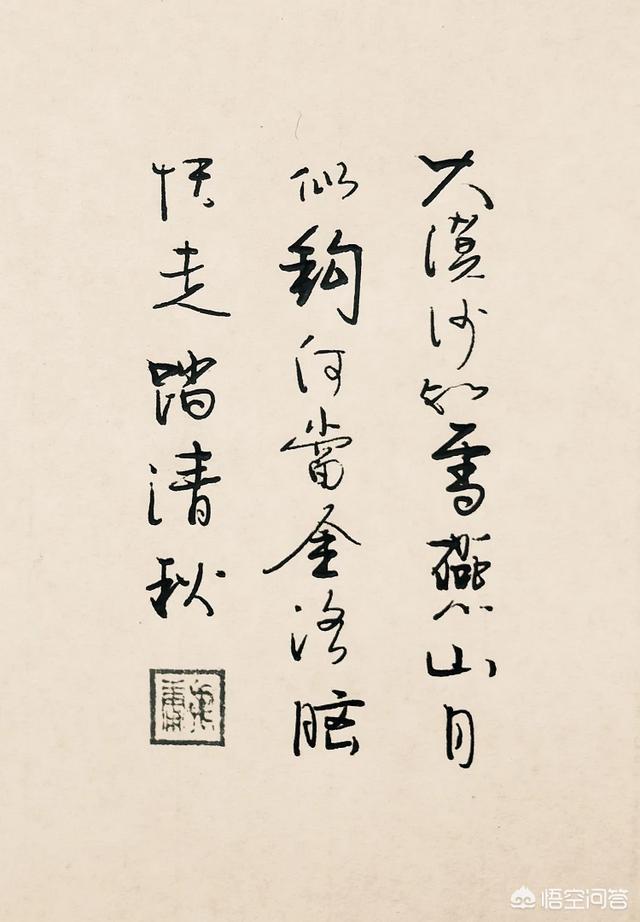 大漠沙如雪燕山月
似鉤何當金絡腦
快走踏清秋
悟空问答